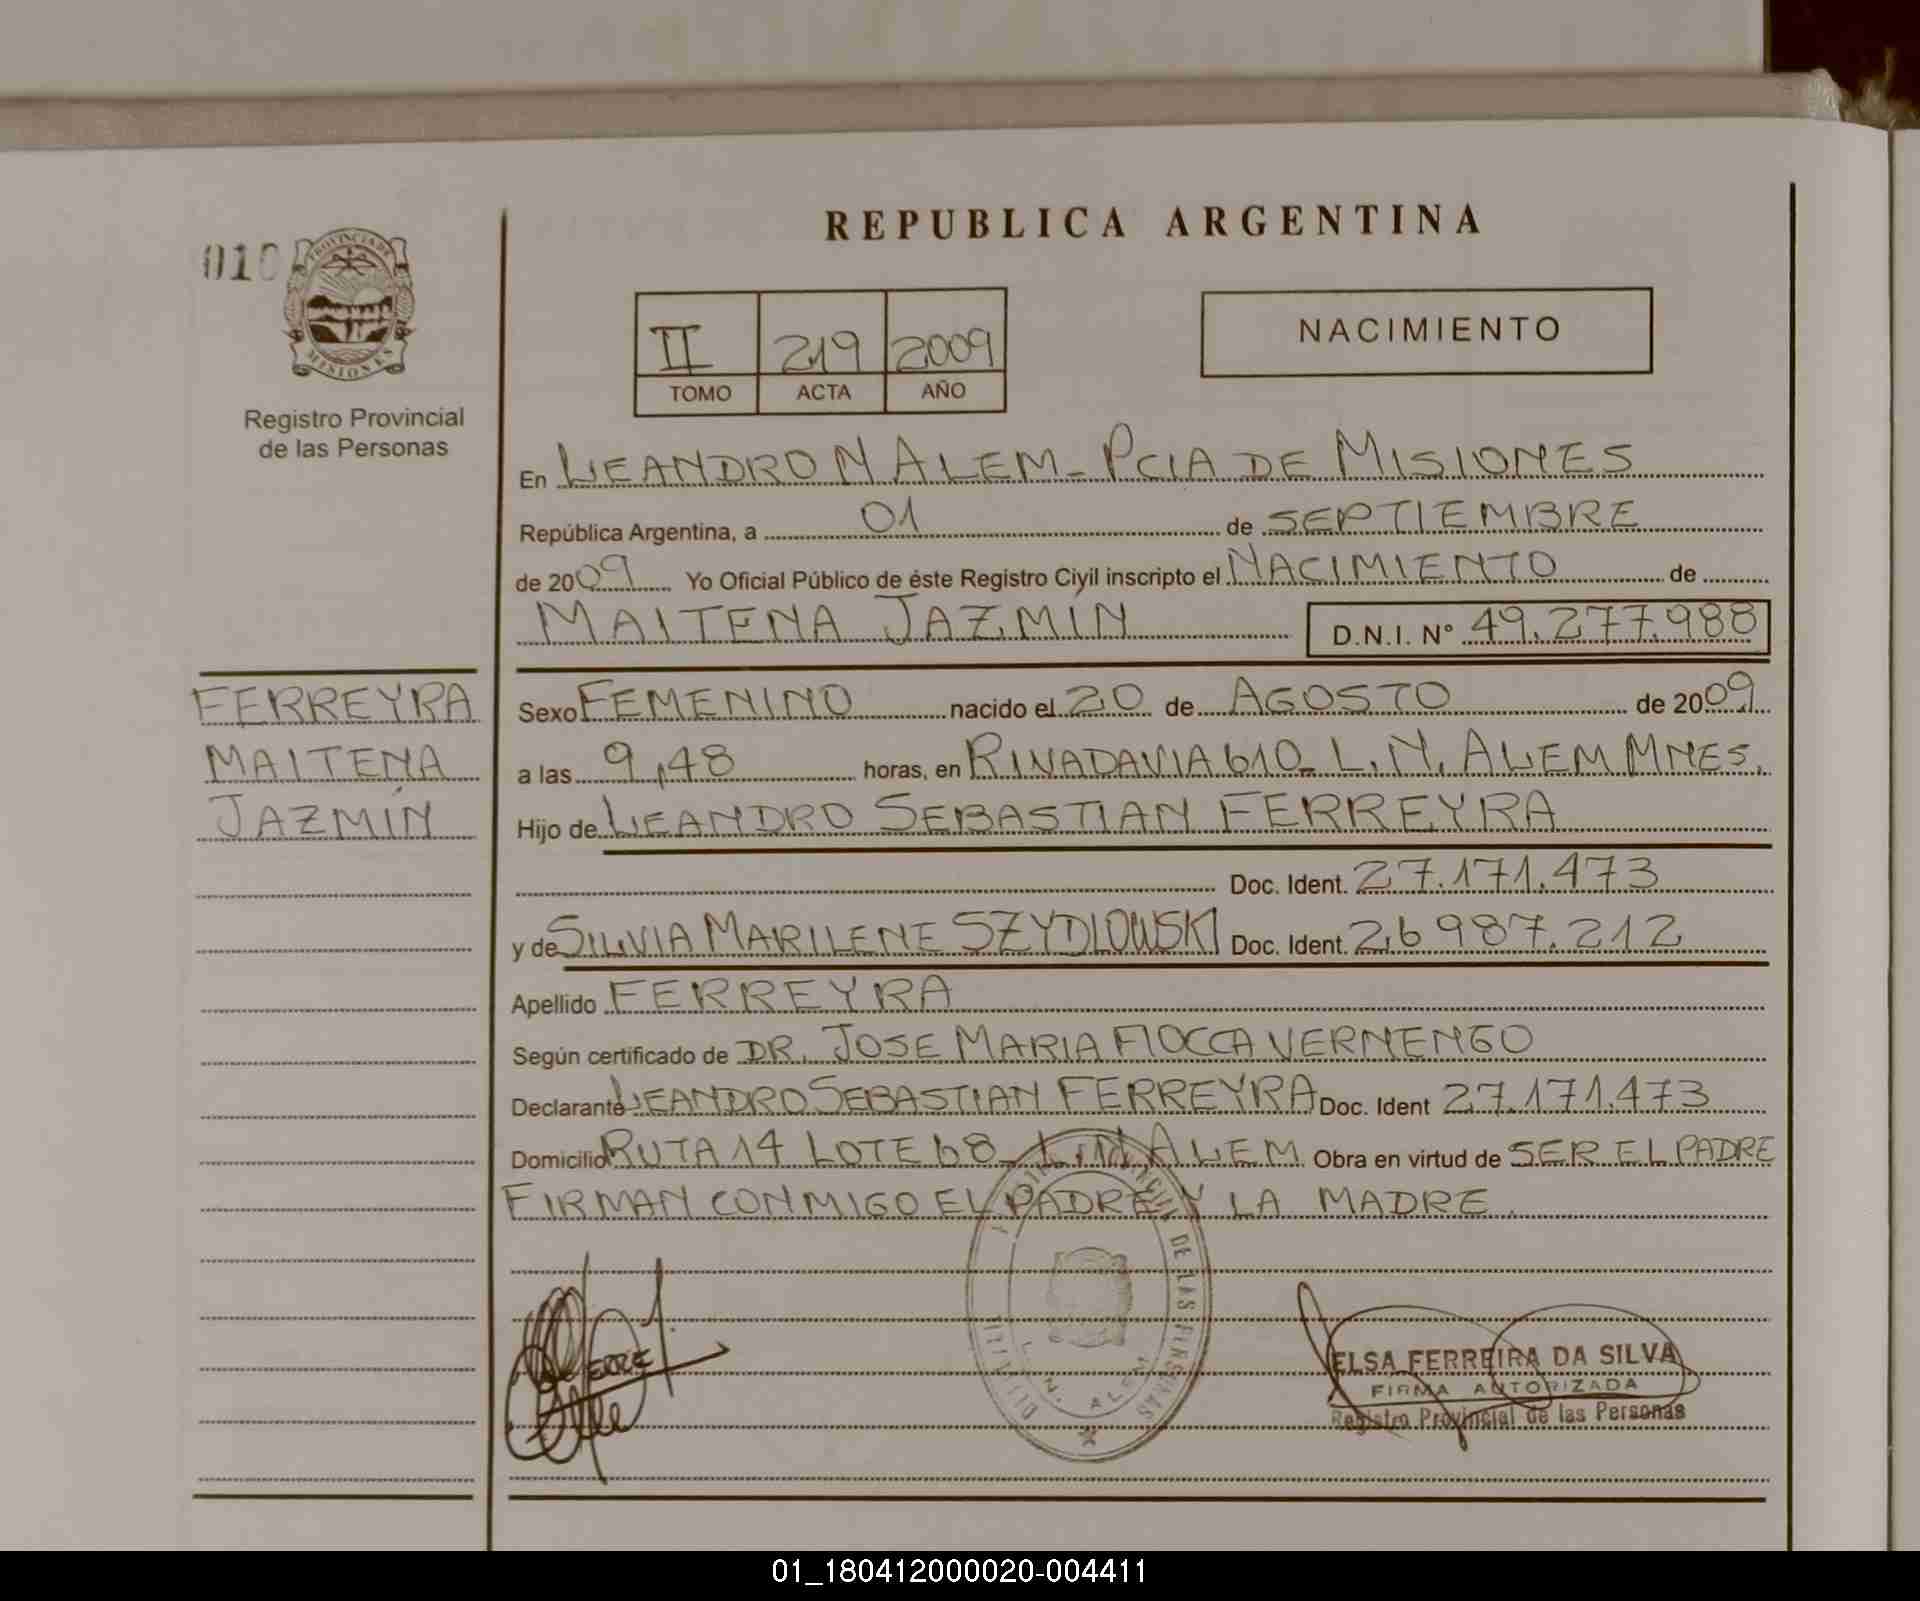 REPUBLICA ARGENTINA
010
PROVINCIA DE
MISIONES
Registro Provincial
de las Personas
II 219 2009
TOMO ACTA AÑO
NACIMIENTO
En LEANDRO N ALEM - PCIA DE MISIONES
República Argentina, a 01 de SEPTIEMBRE
de 2009 Yo Oficial Público de éste Registro Civil inscripto el NACIMIENTO de
MAITENA JAZMÍN D.N.I. N° 49.277.988
FERREYRA
MAITENA
JAZMÍN
Sexo FEMENINO nacido el 20 de AGOSTO de 2009
a las 9,48 horas, en RIVADAVIA 610_ L.N. ALEM MNES.
Hijo de LEANDRO SEBASTIAN FERREYRA
Doc. Ident. 27.171.473
y de SILVIA MARILENE SZYDLOWSKI Doc. Ident. 26 987.212
Apellido FERREYRA
Según certificado de DR. JOSE MARIA FIOCCA VERNENGO
Declarante LEANDRO SEBASTIAN FERREYRA Doc. Ident 27.171.473
Domicilio RUTA 14 LOTE 68_ L.N ALEM Obra en virtud de SER EL PADRE
FIRMAN CONMIGO EL PADRE Y LA MADRE.
DE LAS PERSONAS
L. N. ALEM
ELSA FERREIRA DA SILVA
FIRMA AUTORIZADA
Registro Provincial de las Personas
01_180412000020-004411